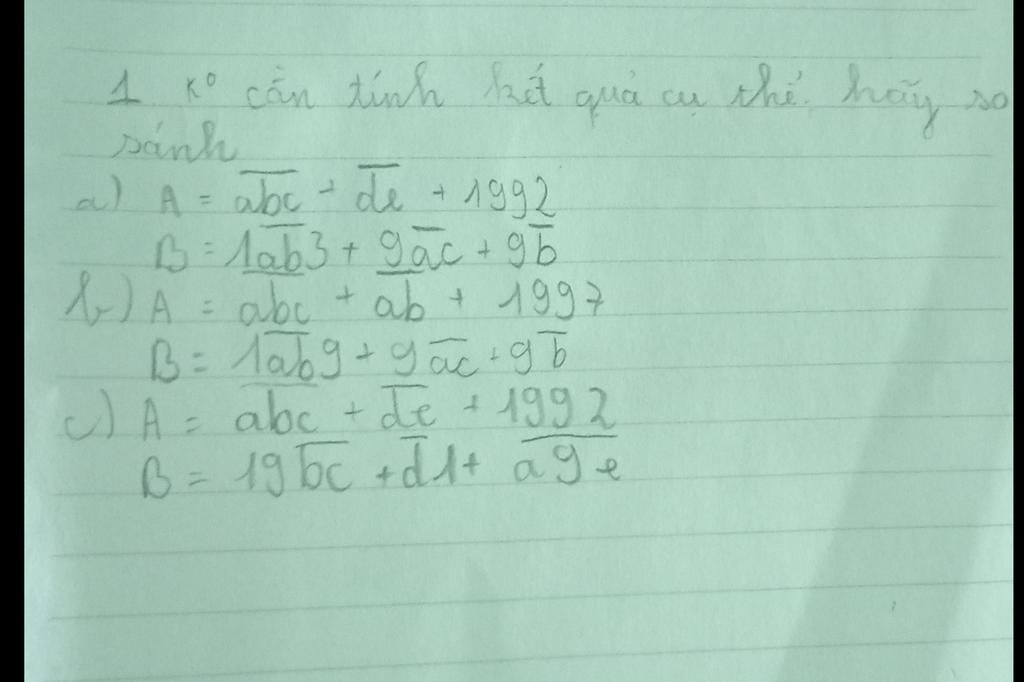 1 Kº cần tính kết quả cụ thể. hãy so
sánh
a) A = \overline{abc} + \overline{de} + 1992
B = 1\overline{ab}3 + 9\overline{a}c + 9\overline{b}
b) A = \overline{abc} + \overline{ab} + 1997
B = 1\overline{ab}9 + 9\overline{ac} + 9\overline{b}
c) A = \overline{abc} + \overline{de} + 1992
B = 19\overline{bc} + \overline{d}1 + \overline{a9e}